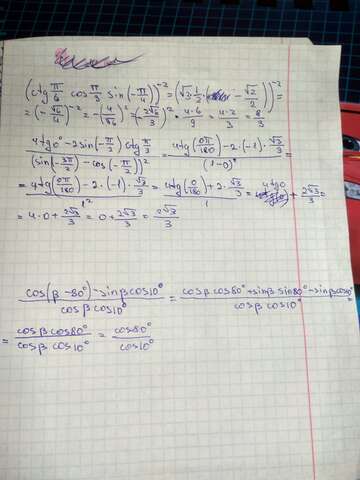 (ctg π/6 cos π/3 sin(-π/4))^-2 = (√3·1/2·(-√2/2))^-2 =
= (-√6/4)^-2 = (-4/√6)^2 = (-2√6/3)^2 = 4·6/9 = 4·2/3 = 8/3
4tg0° - 2sin(-π/2) ctg π/3 / (sin(-3π/2) - cos(-π/2))^2 = 4tg(0π/180) - 2·(-1)·√3/3 / (1-0)^2 =
= 4tg(0π/180) - 2·(-1)·√3/3 / 1^2 = 4tg(0/180) + 2·√3/3 / 1 = 4tg0 + 2√3/3 =
= 4·0 + 2√3/3 = 0 + 2√3/3 = 2√3/3
cos(β-80°) - sinβcos10° / cosβcos10° = cosβcos80° + sinβsin80° - sinβcos10° / cosβcos10° =
= cosβcos80° / cosβcos10° = cos80° / cos10°